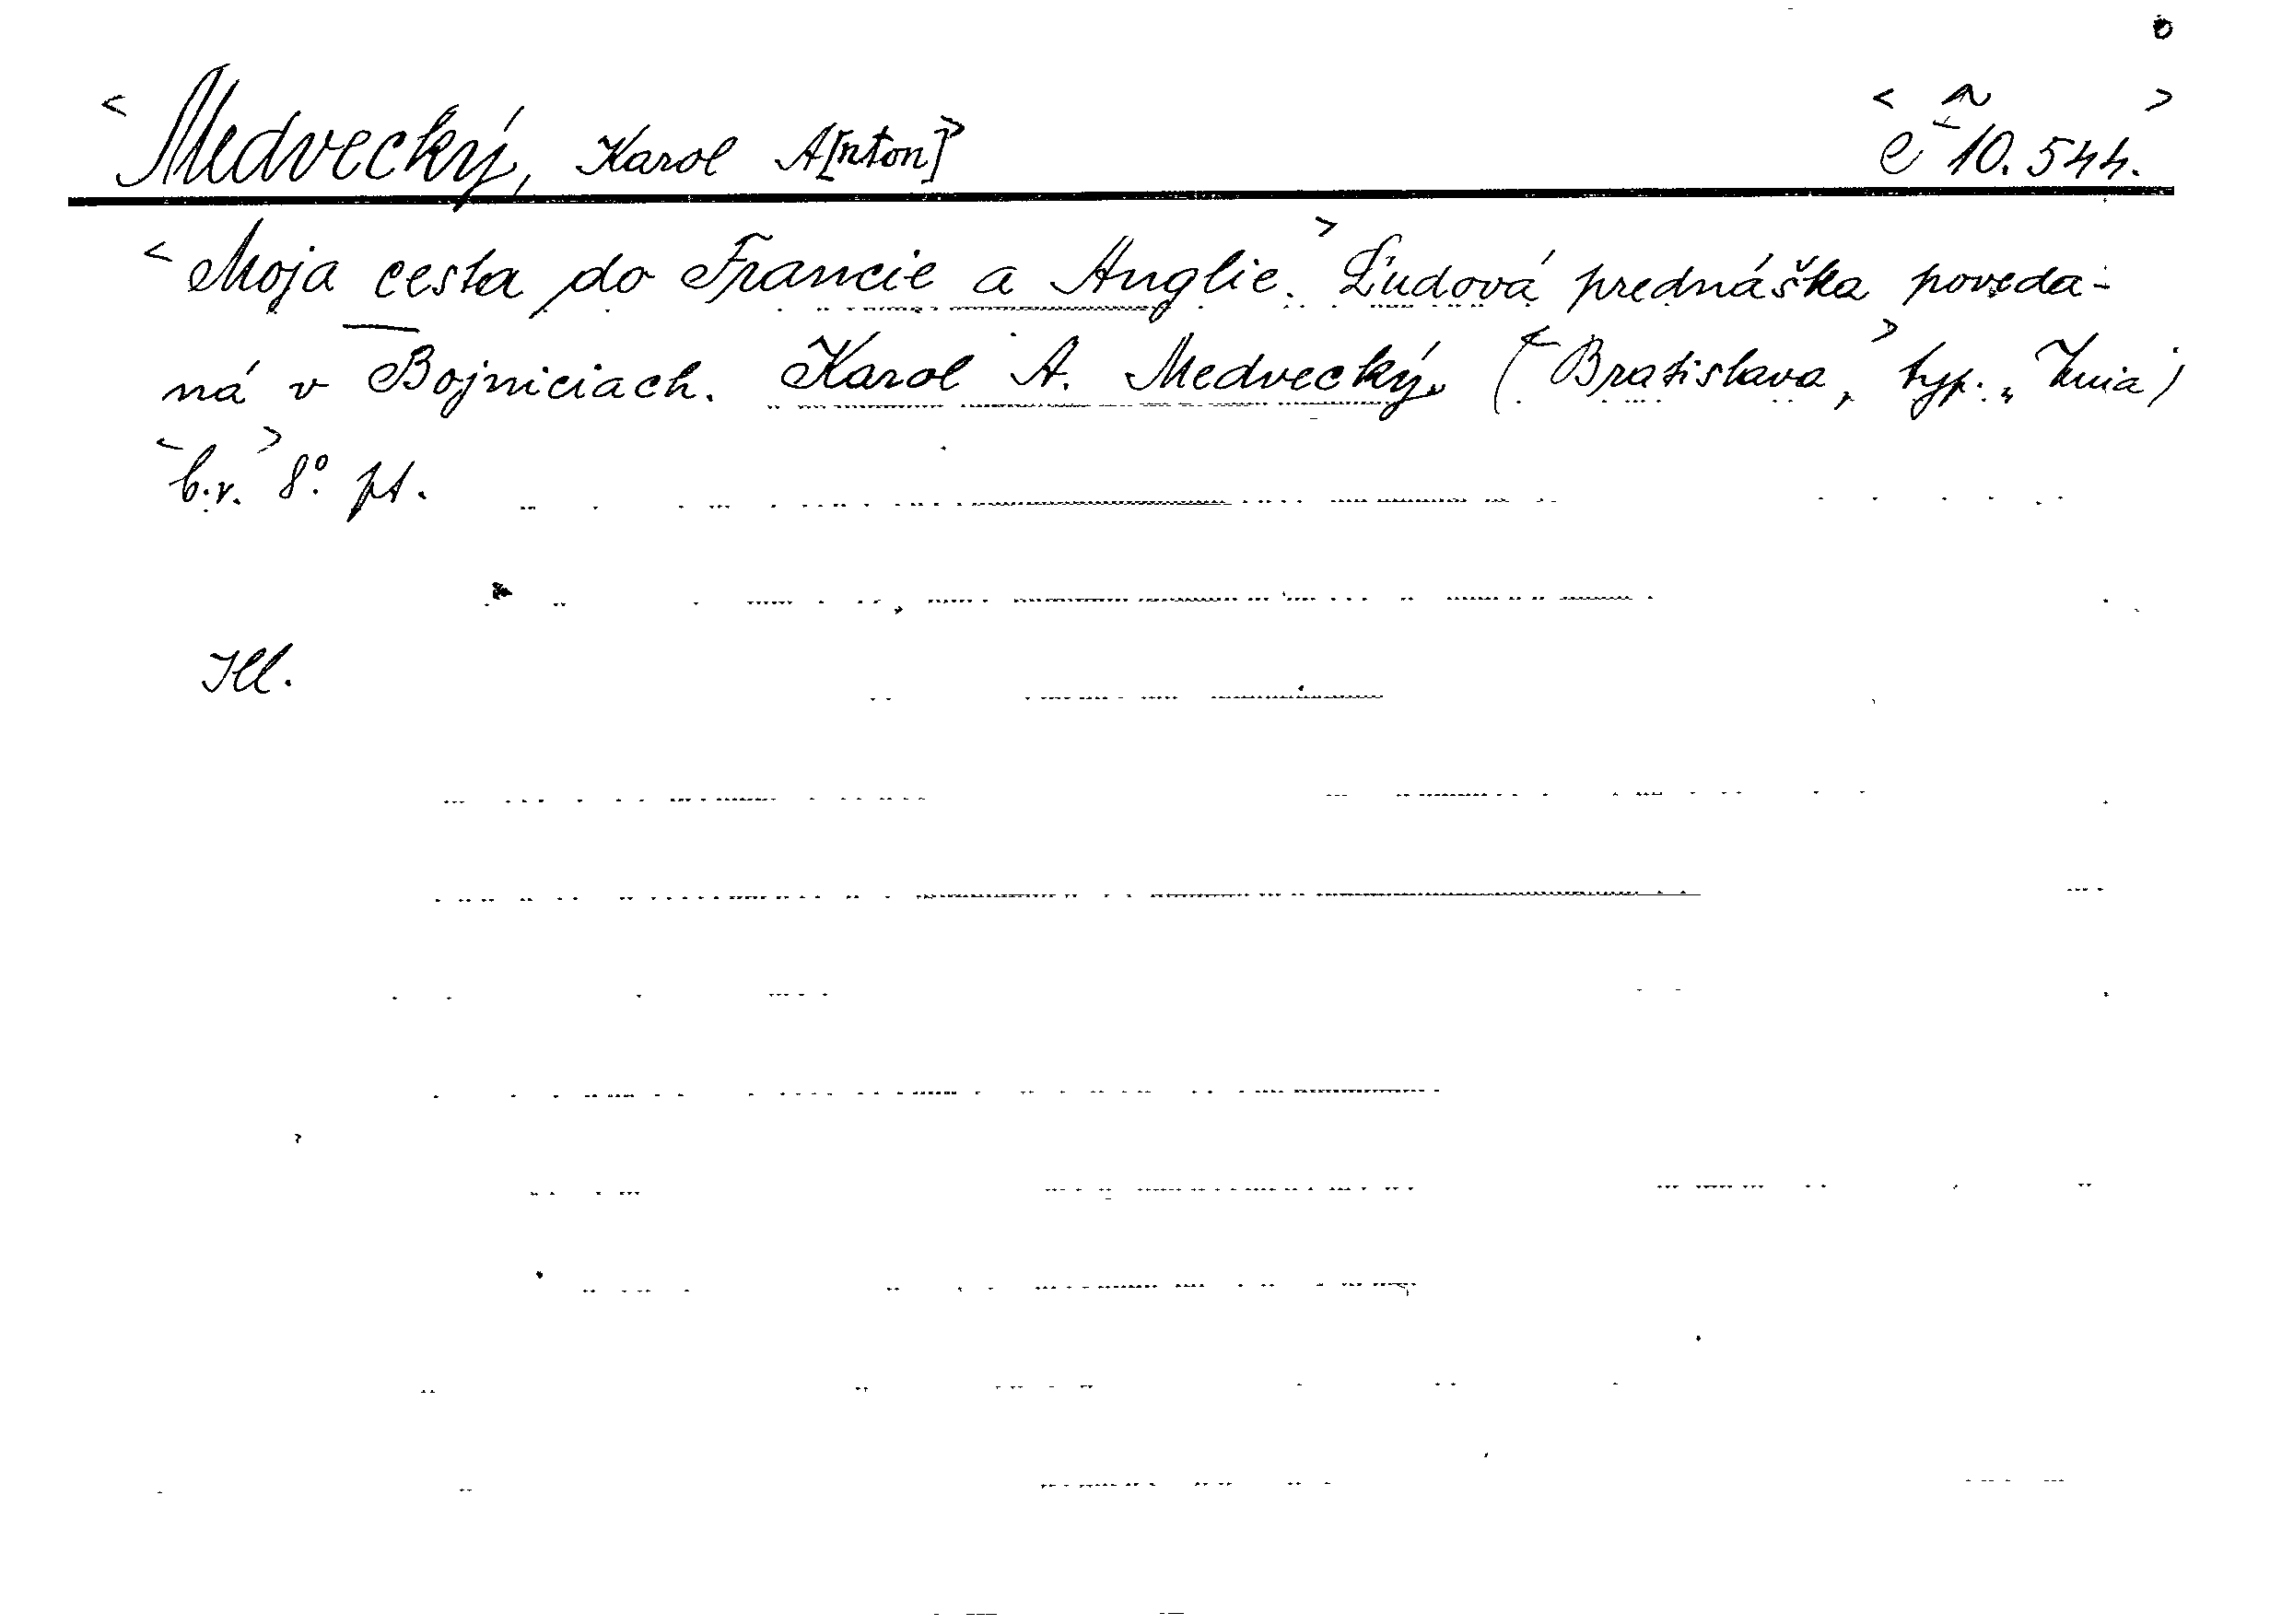 <Medvecký, Karol A[nton]> <e 10.544.>
<Moja cesta do Francie a Anglie.> Ľudová prednáška poveda-
ná v Bojniciach. Karol A. Medvecký. (<Bratislava,> typ. „Unia)
<b.r.> 8° pt.
Ill.